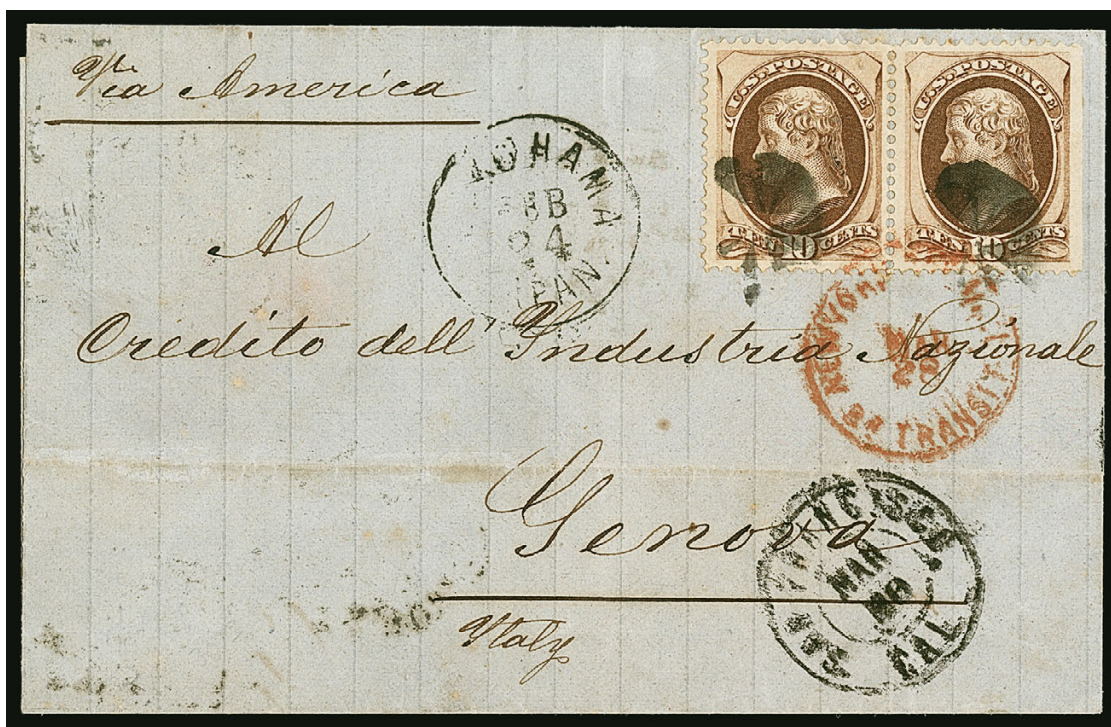 Via America
U.S. POSTAGE
TEN 10 CENTS
U.S. POSTAGE
TEN 10 CENTS
KOHAMA
24
PAN
Al
Credito dell' Industria Nazionale
NEW YORK
Br TRANSIT
Genova
SAN FRANCISCO
MAR
CAL
Italy